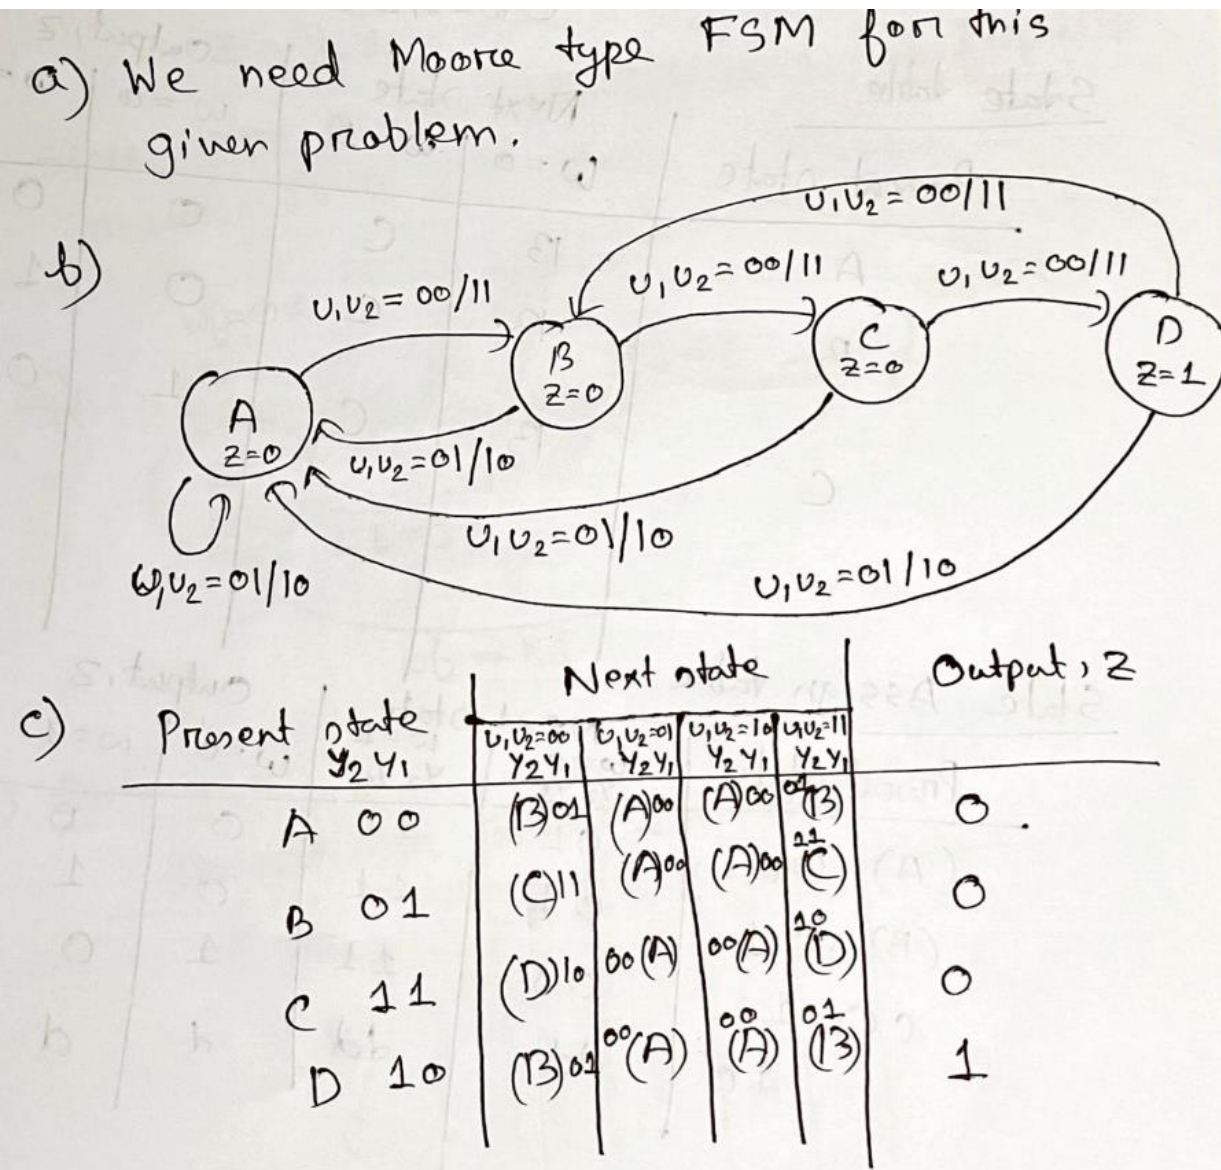 a) We need Moore type FSM for this
given problem.
b)
υ1υ2 = 00/11
υ1υ2 = 00/11
υ1υ2 = 00/11
υ1υ2 = 00/11
A
z=0
B
z=0
C
z=0
D
z=1
υ1υ2=01/10
υ1υ2=01/10
υ1υ2=01/10
υ1υ2=01/10
c) Present state Next state Output, z
y2 y1 υ1υ2=00 υ1υ2=01 υ1υ2=10 υ1υ2=11
Y2Y1 Y2Y1 Y2Y1 Y2Y1
A 00 (B)01 (A)00 (A)00 01(B) 0
B 01 (C)11 (A)00 (A)00 11(C) 0
C 11 (D)10 00(A) 00(A) 10(D) 0
D 10 (B)01 00(A) 00(A) 01(B) 1